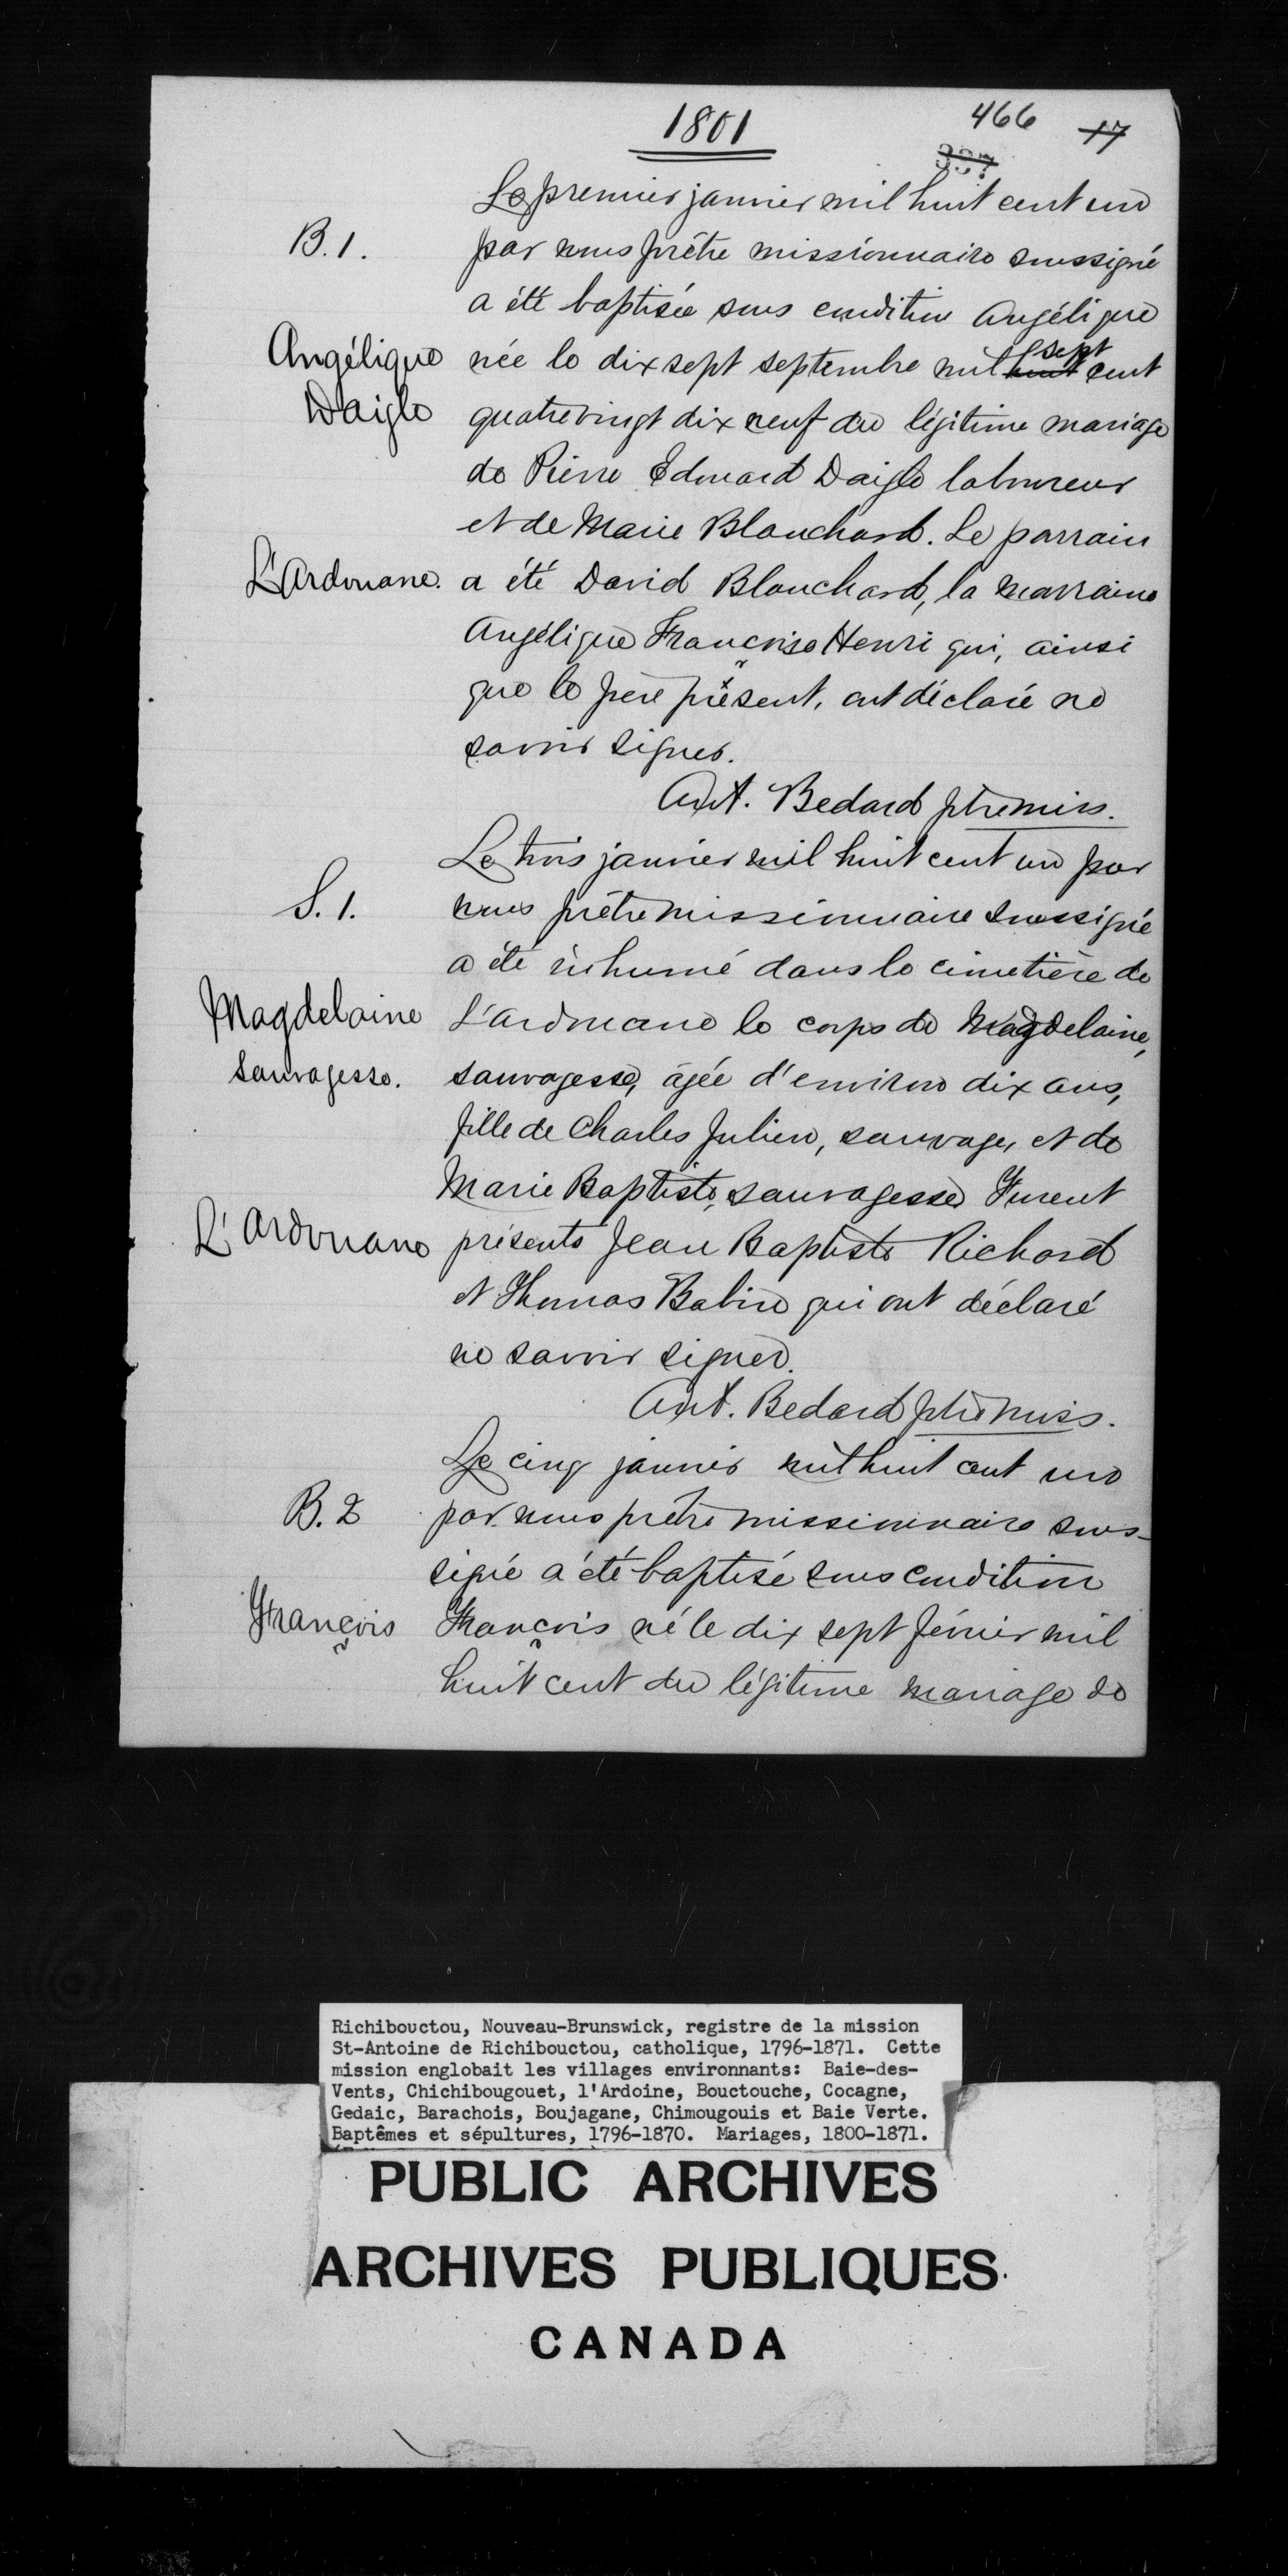 1801
466 17
337
Le premier janvier mil huit cent un
B. 1. par nous prêtre missionnaire soussigné
a été baptisée sous condition Angélique
Angélique née le dix sept septembre mil huit sept cent
Daigle quatrevingt dix neuf du légitime mariage
de Pierre Edouard Daigle laboureur
et de Marie Blanchard. Le parrain
L'Ardouane. a été David Blanchard, la marraine
Angélique Françoise Henri qui, ainsi
que le père présent, ont déclaré ne
savoir signer.
Ant. Bedard ptre miss.
Le trois janvier mil huit cent un par
S. 1. nous prêtre missionnaire soussigné
a été inhumé dans le cimetière de
Magdelaine L'ardouane le corps de Magdelaine,
sauvagesse. sauvagesse, âgée d'environ dix ans,
fille de Charles Julien, sauvage, et de
Marie Baptiste, sauvagesse. Furent
L'Ardouane présents Jean Baptiste Richard
et Thomas Babin qui ont déclaré
ne savoir signer.
Ant. Bedard ptre miss.
Le cinq janvier mil huit cent un
B. 2 par nous prêtre missionnaire sous-
signé a été baptisé sous condition
François François né le dix sept février mil
huit cent du légitime mariage de
Richibouctou, Nouveau-Brunswick, registre de la mission
St-Antoine de Richibouctou, catholique, 1796-1871. Cette
mission englobait les villages environnants: Baie-des-
Vents, Chichibougouet, l'Ardoine, Bouctouche, Cocagne,
Gedaic, Barachois, Boujagane, Chimougouis et Baie Verte.
Baptêmes et sépultures, 1796-1870. Mariages, 1800-1871.
PUBLIC ARCHIVES
ARCHIVES PUBLIQUES
CANADA